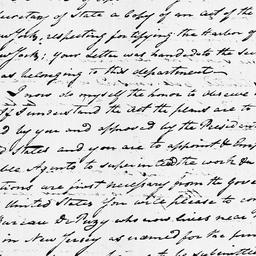 Secretary of State a Copy of an act of the
respecting fortifying the Harbor of
your letter was handed to the Sec
as belonging to this department
I now do myself the honor to observe
If I understand the act the plans are to
d by you and approved by the President
d States and you are to appoint
ble Agents to superintend the work &
tions are first necessary from the Gove
United States You will please to con
De Puzy who now lives near
in New Jersey as named for the pur
to be submitted